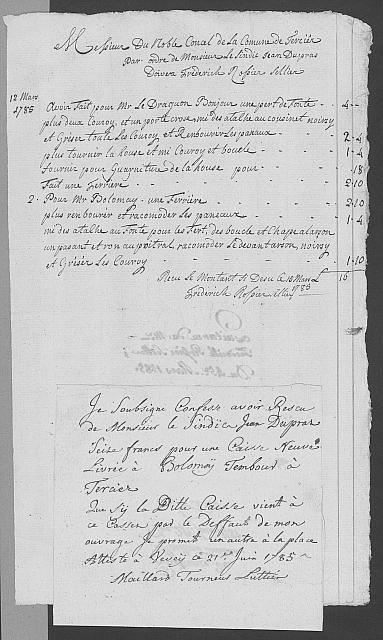 Messieur Du Noble Concel de La Comune de Fercier
Par ordre de Monsieur Le Sindic Jean Dupras
Devera Frederich Rossier Sellier
12 Mars
1785
Avoir fait pour Mr Le Dragon Bonjour une pert de Fonte 4 --
plus deux Couroy, et un porte crosse mi des atalhe au cousinet noircy
et Griser toute Les Couroy et Renbourer Les panaux 2-4
plus fournir la house et mi Couroy et boucle 1-4
fournir pour Guarniture de la house pour -18
Fait une ferriere 2-10
2 - Pour Mr Bolomay - une Ferriere 2-10
plus renbourer et racomoder Les paneaux 1-4
mi des atalhe au Fonte pour les Fert, des boucle et Chape alarson
un pasant et ron au poitral, racomoder Le devant arson, noircy
et Griser Les Couroy 1-10
Recu Le Montant si Desu Le 18 Mars L 16
Frederich Rossier sellier 1785
Je Soubsigne Confesse avoir Rescu
de Monsieur le Sindicx Jean Dupraz
Seize francs pour une Caisse Neuve
Livrée à Bolomay Tembour à
Fercier
Que Sy la Ditte Caisse vient à
ce Casser par le Deffaut de mon
ouvrage Je promet un autre à la place
Atteste à Vevey ce 21e Juin 1785
Maillard Tourneur Luttier